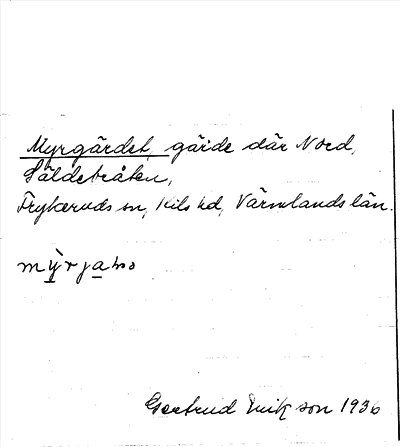 Myrgärdet, gärde där Nord,
Säldebråten,
Frykeruds sn, Kils hd, Värmlands län.
mỳrjaɷ
Gertrud Erikson 1936